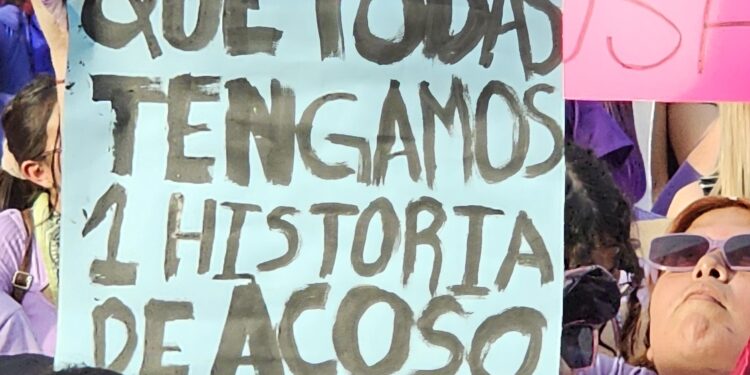 QUE TODAS
TENGAMOS
1 HISTORIA
DE ACOSO